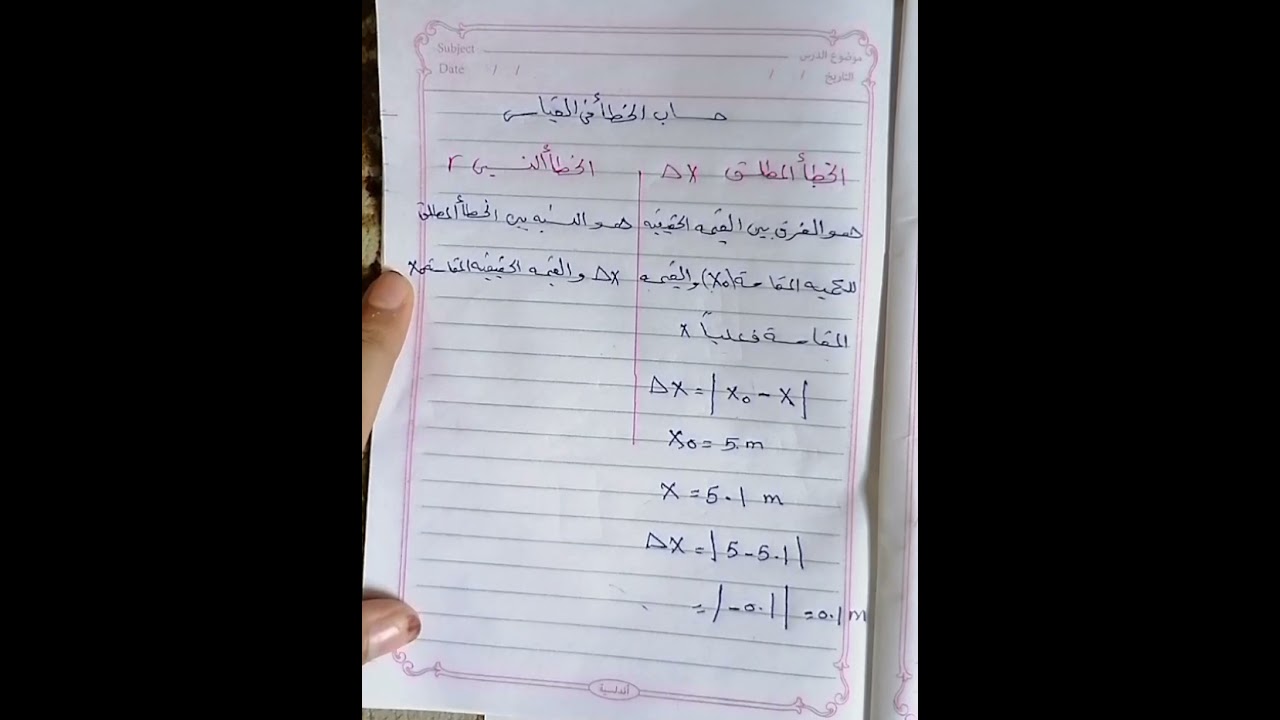 Subject موضوع الدرس
Date / / / / التاريخ
حساب الخطأ في القياس
الخطأ المطلق Δx
هو الفرق بين القيمه الحقيقيه
للكميه المقاسة (x₀) والقيمه
المقاسة فعلياً x
Δx = | x₀ - x |
x₀ = 5 m
x = 5.1 m
Δx = | 5 - 5.1 |
= | -0.1 | = 0.1 m
الخطأ النسبي r
هو النسبه بين الخطأ المطلق
Δx والقيمه الحقيقيه المقاسة x₀
أندلسية